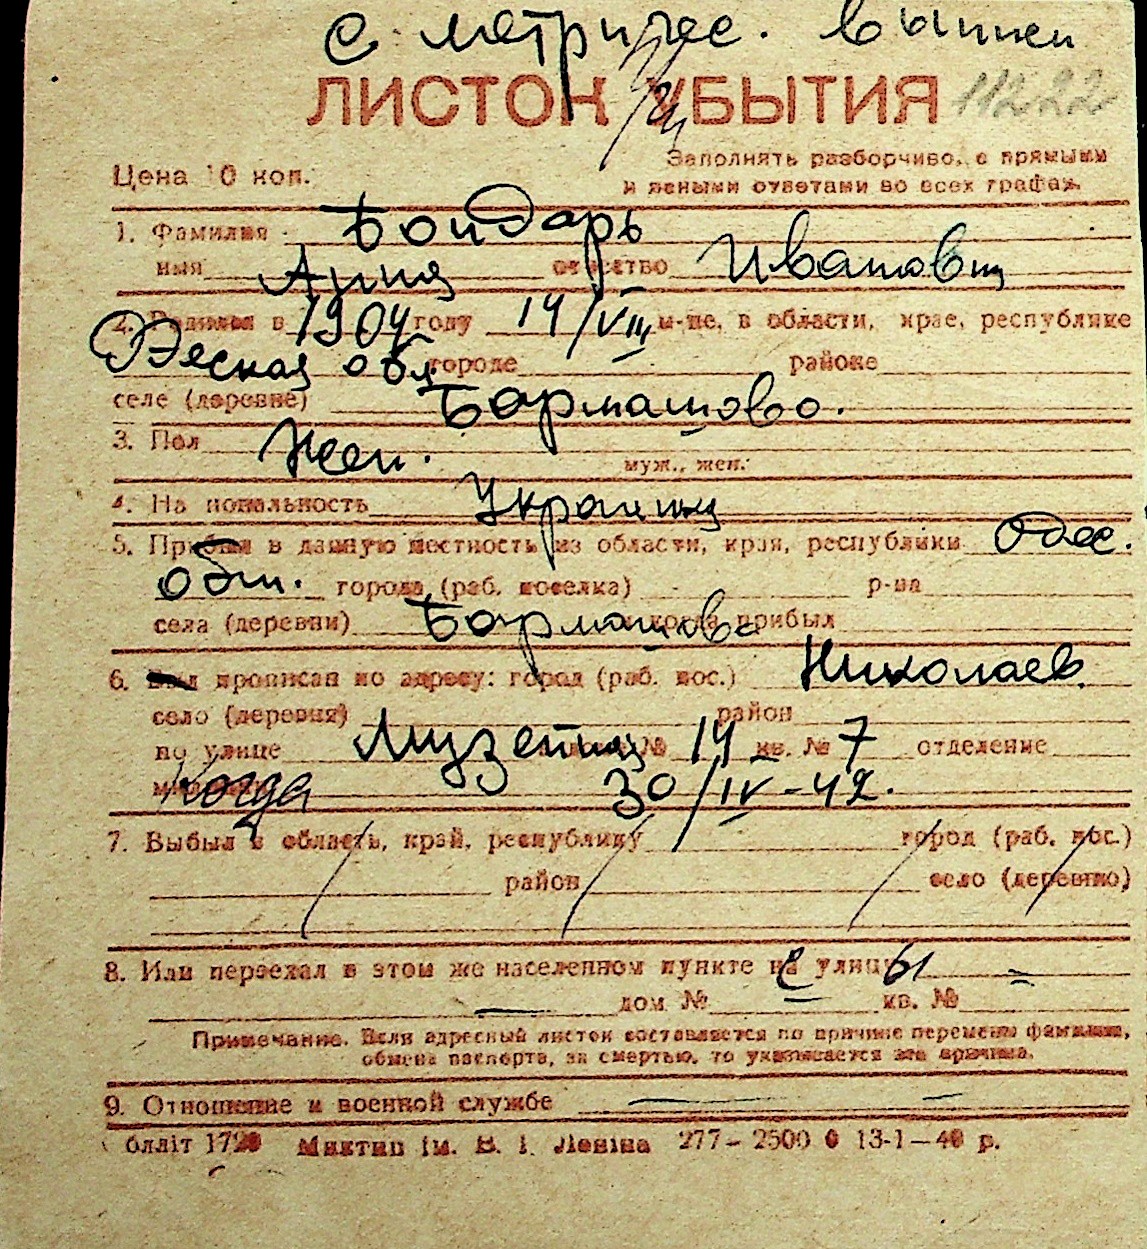 с метричес. выписи
ЛИСТОК УБЫТИЯ 11222
Заполнять разборчиво, с прямыми
Цена 10 коп. и ясными ответами во всех графах.
1. Фамилия Бондарь
имя Анна отчество Ивановна
2. Родился в 1904 году 14/VIII м-це, в области, крае, республике
Одеская обл. городе районе
селе (деревне) Бармашово.
3. Пол Жен. муж., жен.
4. Национальность Украинка
5. Прибыл в данную местность из области, края, республики Одес.
обл. города (раб. поселка) р-на
села (деревни) Бармашово и когда прибыл
6. Был прописан по адресу: город (раб. пос.) Николаев
село (деревня) район
по улице Музейная № 14 кв. № 7 отделение
Когда 30/IV-42.
7. Выбыл в область, край, республику город (раб. пос.)
район село (деревню)
8. Или переехал в этом же населенном пункте на улицу
дом № кв. №
Примечание. Если адресный листок составляется по причине перемены фамилии,
обмена паспорта, за смертью, то указывается эта причина.
9. Отношение к военной службе
блліт 1720 Миктип ім. В. І. Леніна 277—2500 0 13-1—40 р.